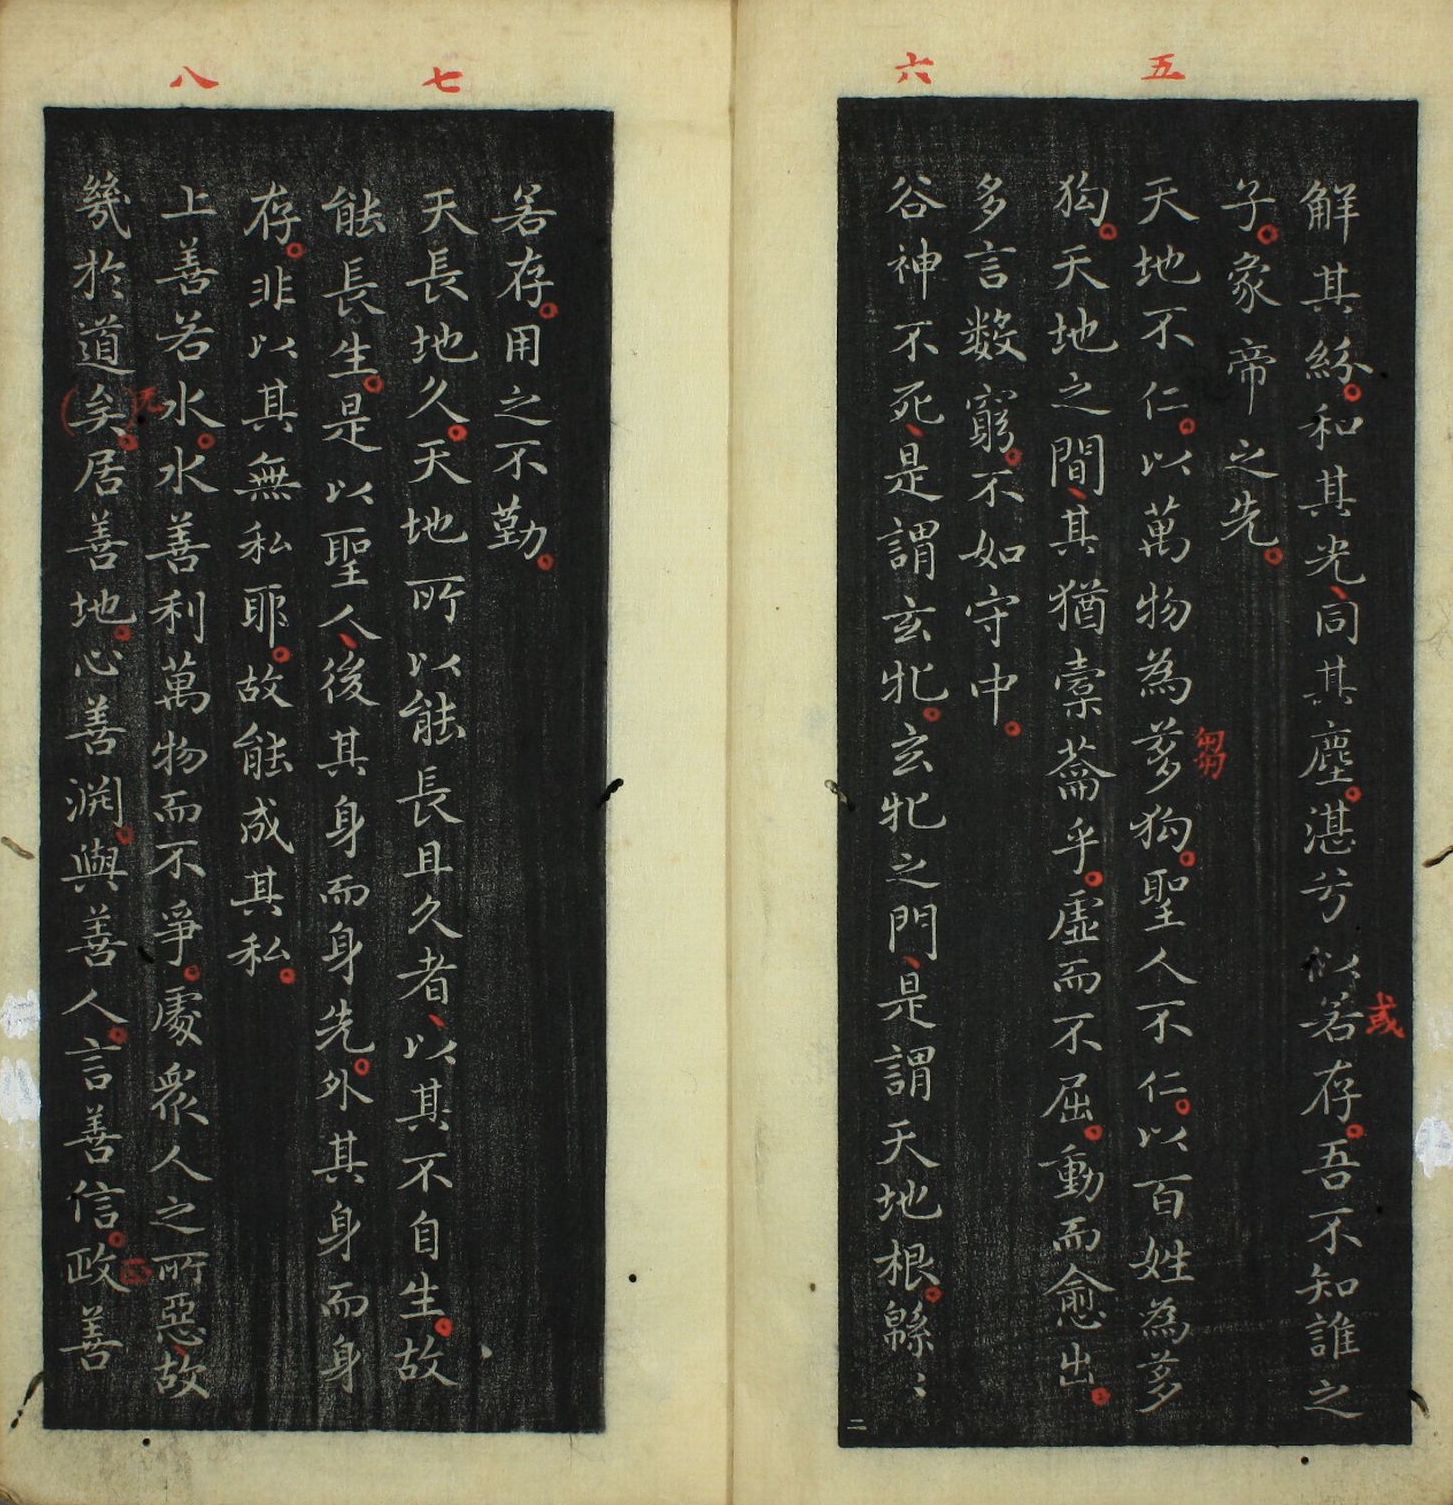 五
六
解其紛。和其光、同其塵。湛兮似若存。吾不知誰之
或
子。象帝之先。
天地不仁。以萬物為芻狗。聖人不仁。以百姓為芻
芻
狗。天地之間、其猶橐籥乎。虛而不屈。動而愈出。
多言數窮。不如守中。
谷神不死、是謂玄牝。玄牝之門、是謂天地根。緜〻
二
七
八
若存。用之不勤。
天長地久。天地所以能長且久者、以其不自生。故
能長生。是以聖人、後其身而身先。外其身而身
存。非以其無私耶。故能成其私。
上善若水。水善利萬物而不爭。處衆人之所惡、故
幾於道矣。居善地。心善淵。與善人。言善信。政善